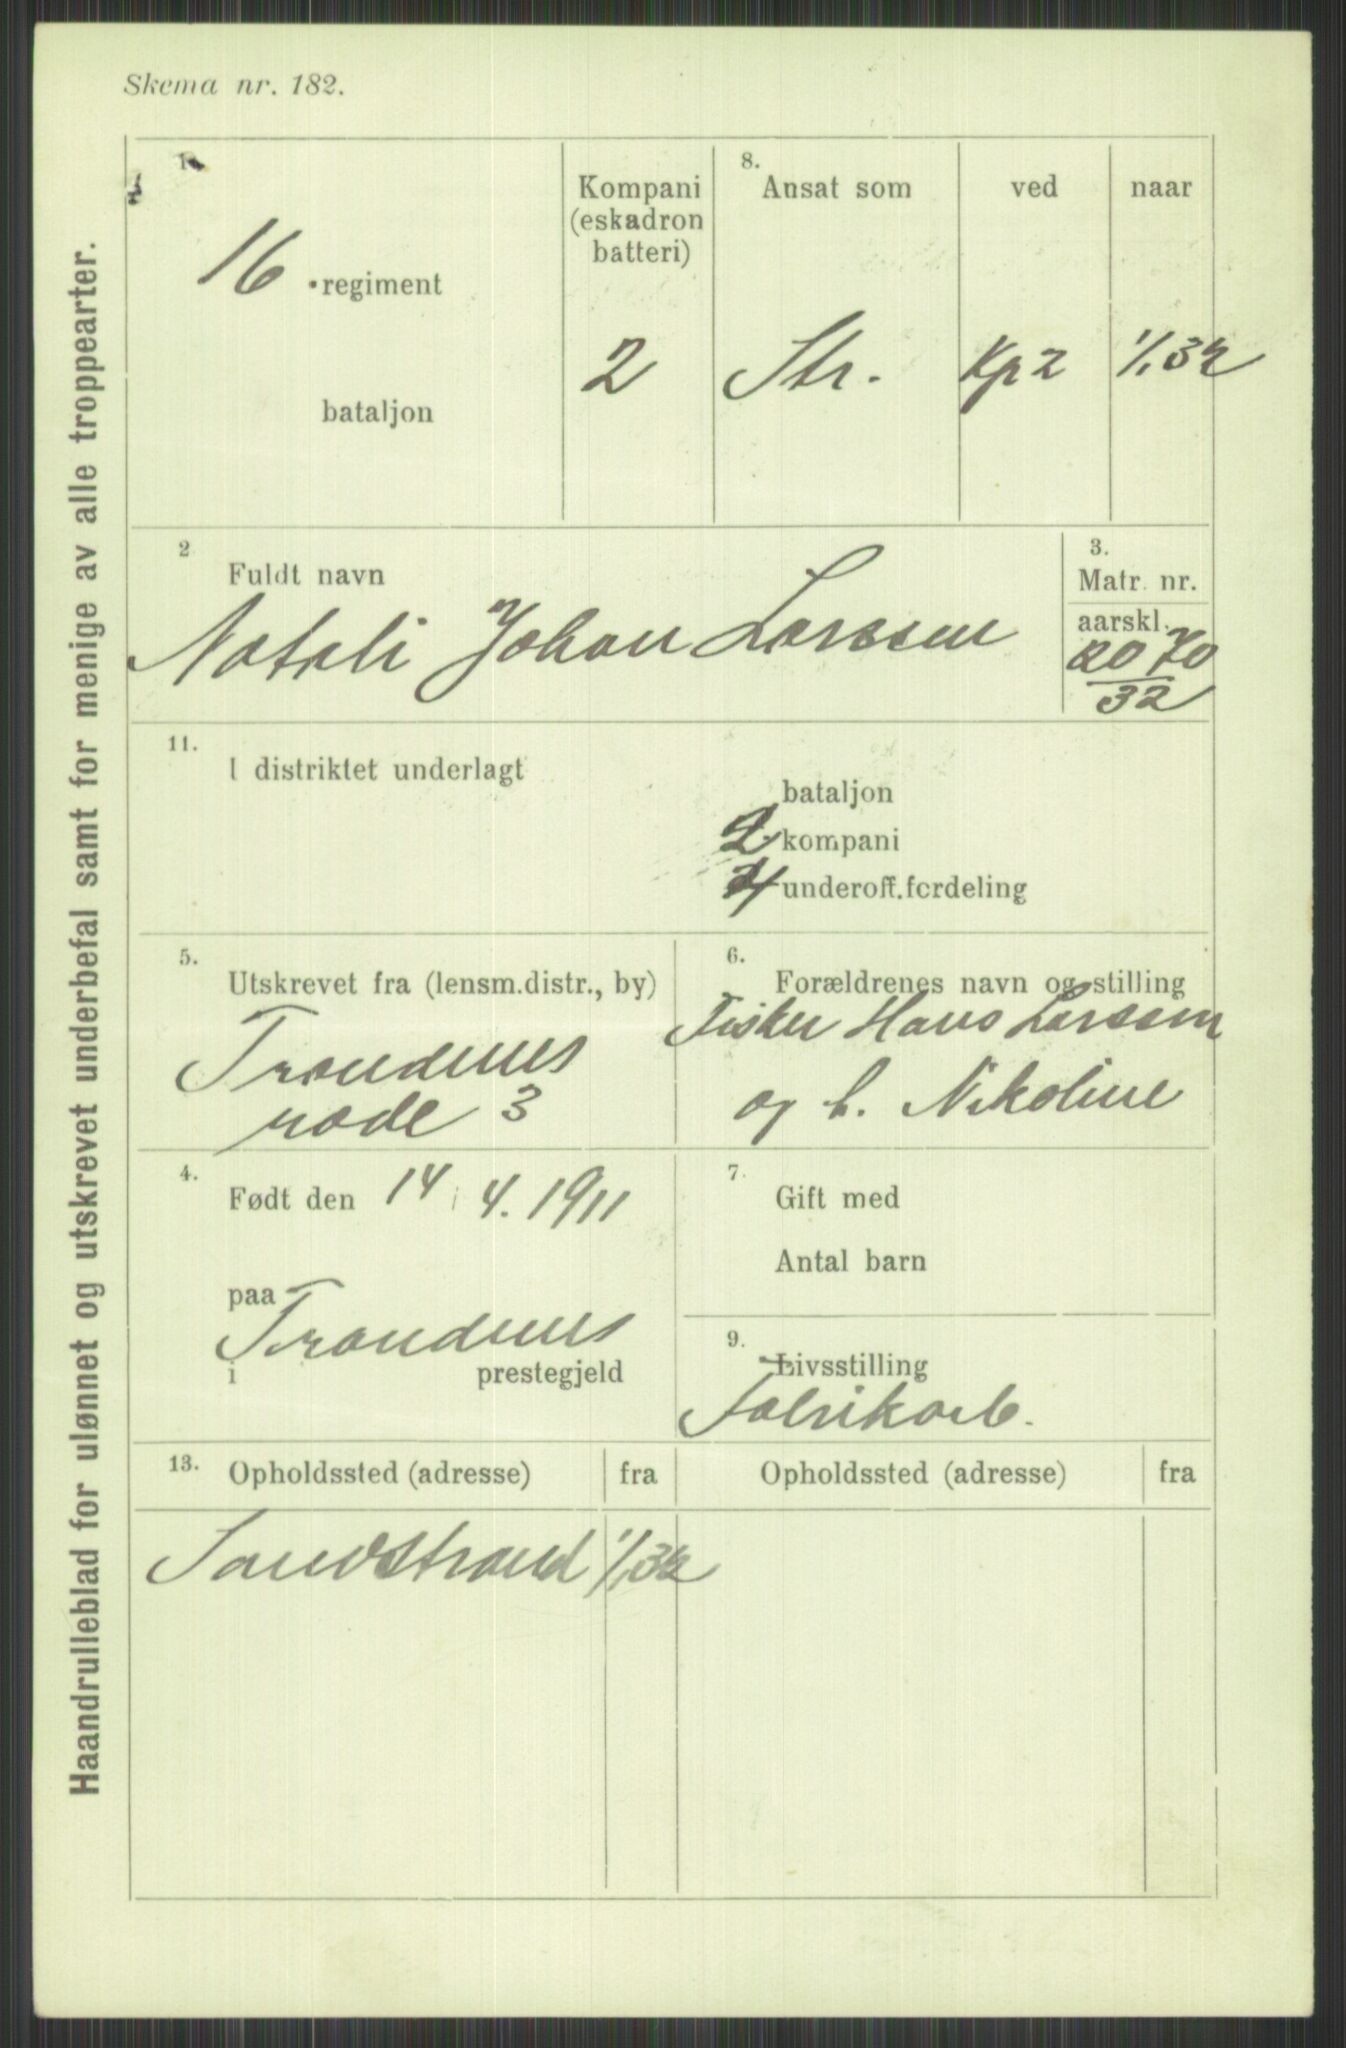 Skema nr. 182.
Haandrulleblad for ulønnet og utskrevet underbefal samt for menige av alle troppearter.
1.
16 . regiment
bataljon
Kompani
(eskadron
batteri)
2
8.
Ansat som
Str.
ved
Kp 2
naar
1/1 32
2
Fuldt navn
Natali Johan Larssen
3.
Matr. nr.
aarskl.
2070
32
11.
I distriktet underlagt
bataljon
2 kompani
underoff.fordeling
5.
Utskrevet fra (lensm.distr., by)
Trondenes
rode 3
6.
Forældrenes navn og stilling
Fisker Hans Larssen
og h. Nikoline
4.
Født den 14 / 4. 1911
paa
Trondenes
i prestegjeld
7.
Gift med
Antal barn
9.
Livsstilling
Fabrikarb.
13. Opholdssted (adresse) fra Opholdssted (adresse) fra
Sandstrand 1/1 32